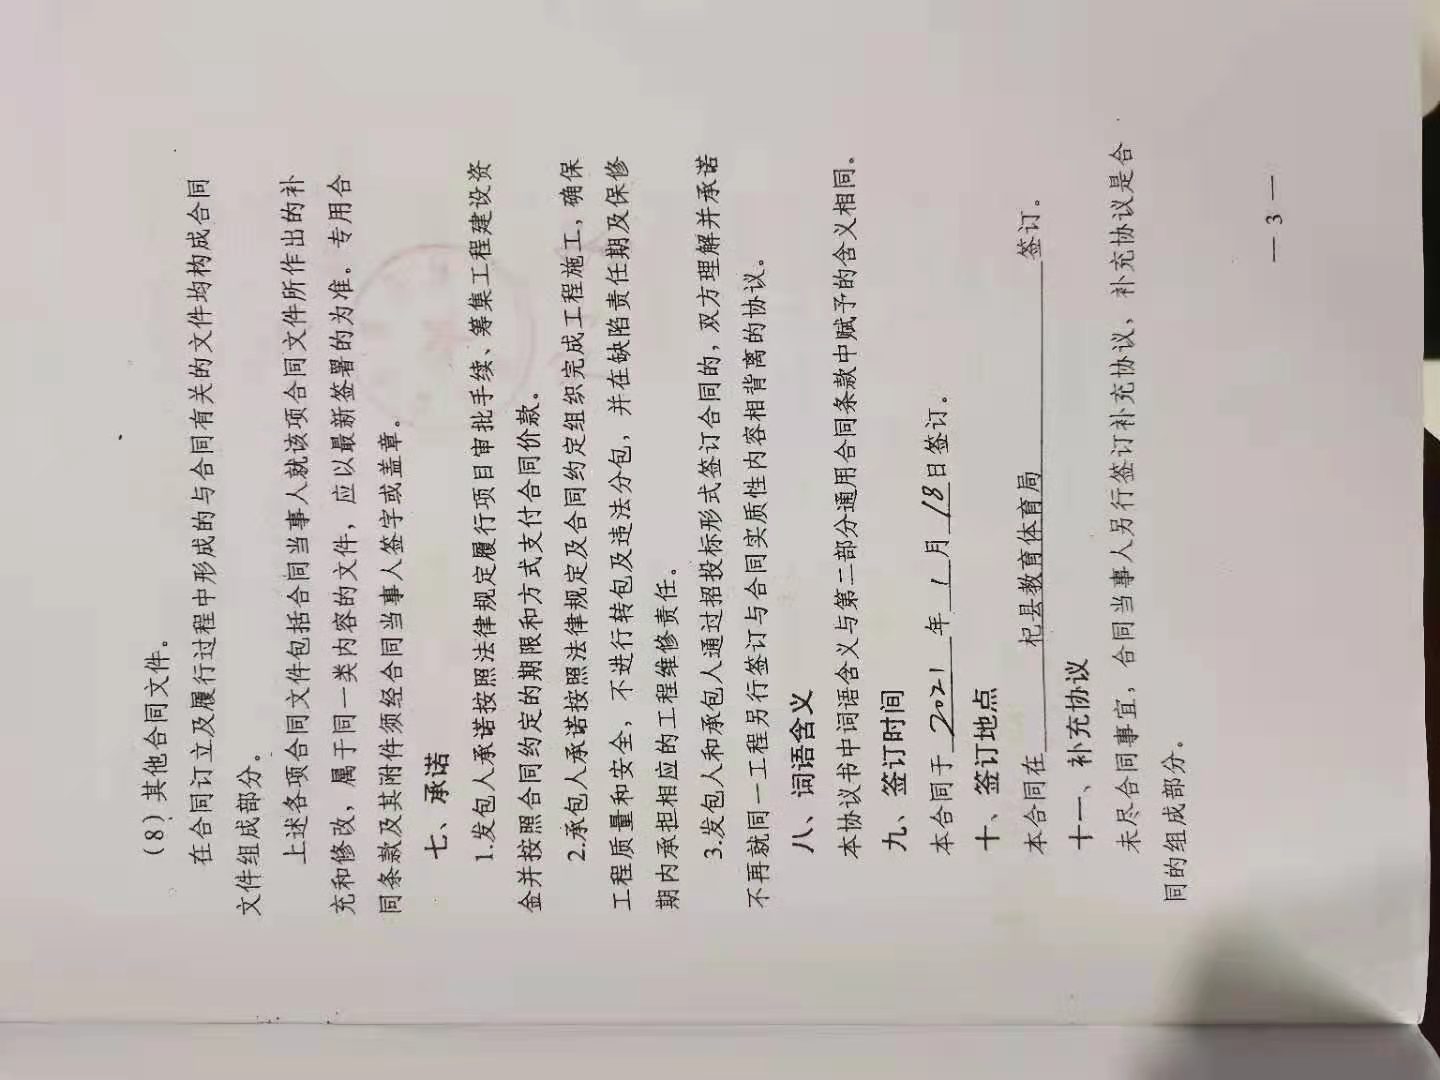 (8) 其他合同文件。
在合同订立及履行过程中形成的与合同有关的文件均构成合同
文件组成部分。
上述各项合同文件包括合同当事人就该项合同文件所作出的补
充和修改，属于同一类内容的文件，应以最新签署的为准。专用合
同条款及其附件须经合同当事人签字或盖章。
七、承诺
1.发包人承诺按照法律规定履行项目审批手续、筹集工程建设资
金并按照合同约定的期限和方式支付合同价款。
2.承包人承诺按照法律规定及合同约定组织完成工程施工，确保
工程质量和安全，不进行转包及违法分包，并在缺陷责任期及保修
期内承担相应的工程维修责任。
3.发包人和承包人通过招投标形式签订合同的，双方理解并承诺
不再就同一工程另行签订与合同实质性内容相背离的协议。
八、词语含义
本协议书中词语含义与第二部分通用合同条款中赋予的含义相同。
九、签订时间
本合同于 2021 年 1 月 18 日签订。
十、签订地点
本合同在 杞县教育体育局 签订。
十一、补充协议
未尽合同事宜，合同当事人另行签订补充协议，补充协议是合
同的组成部分。
— 3 —